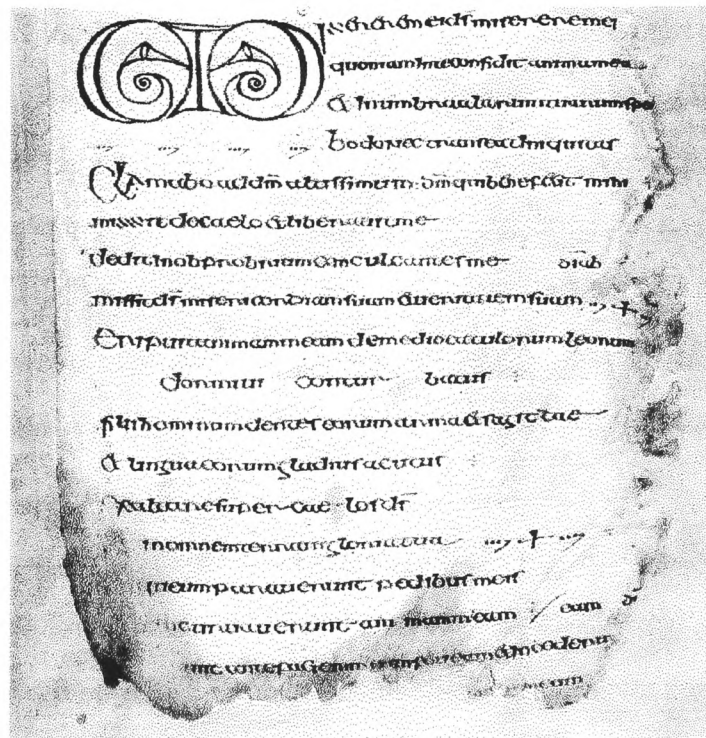 MISERERE mei ds miserere mei
quoniam in te confidit anima mea
et in umbra alarum tuarum spe
bo donec transeat iniquitas
Clamabo ad dm altissimum dm qui beneficit mihi
missit de caelo et liberauit me
dedit in obprobrium conculcantes me diab
missit ds misericordiam suam et ueritatem suam
Eripuit animam meam de medio catulorum leonum
dormiui conturbatus
filii hominum dentes eorum arma et sagittae
et lingua eorum gladius acutus
Exaltare super caelos ds
in omnem terram gloria tua
queum parauerunt pedibus meis
incuruauerunt animam meam eam
ante faciem meam foueam et inciderunt